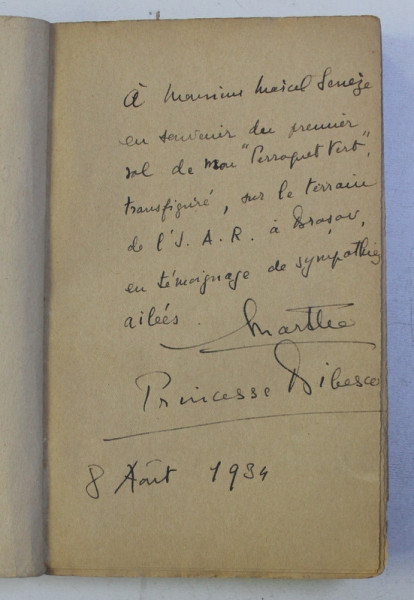 À Monsieur Marcel
en souvenir du premier
vol de mon "Perroquet Vert",
transfiguré, sur le terrain
de l'I. A. R. à Brașov,
en témoignage de sympathies
ailées.
Marthe
Princesse Bibesco
8 Août 1934